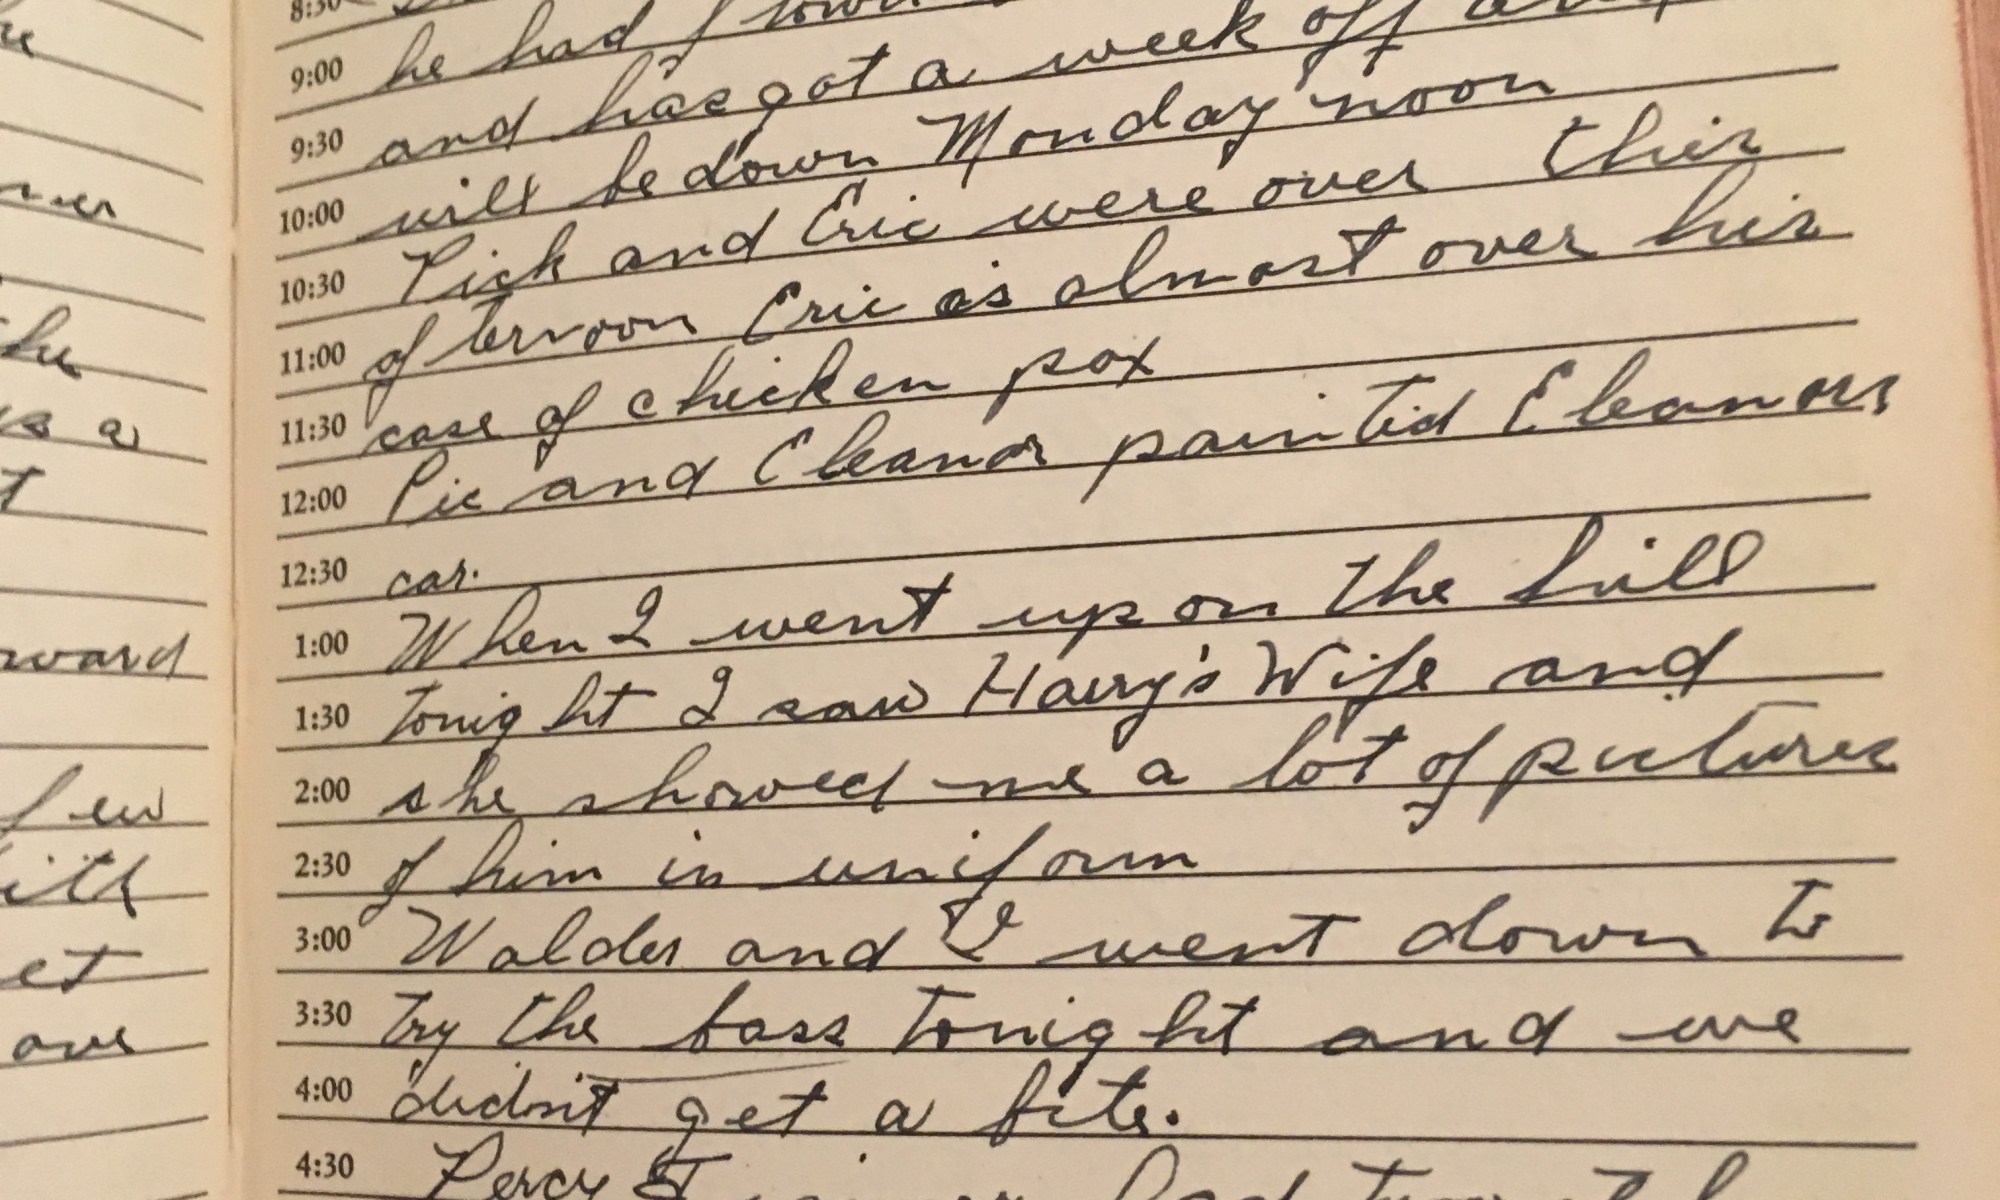 8:30
9:00 he had
9:30 and has got a week off and
10:00 will be down Monday noon
10:30 Pick and Eric were over this
11:00 afternoon Eric is almost over his
11:30 case of chicken pox
12:00 Pic and Eleanor painted Eleanors
12:30 car.
1:00 When I went up on the hill
1:30 tonight I saw Harry's Wife and
2:00 she showed me a lot of pictures
2:30 of him in uniform
3:00 Walder and I went down to
3:30 try the bass tonight and we
4:00 didn't get a bite.
4:30 Percy
the
s a
ward
few
et
ave